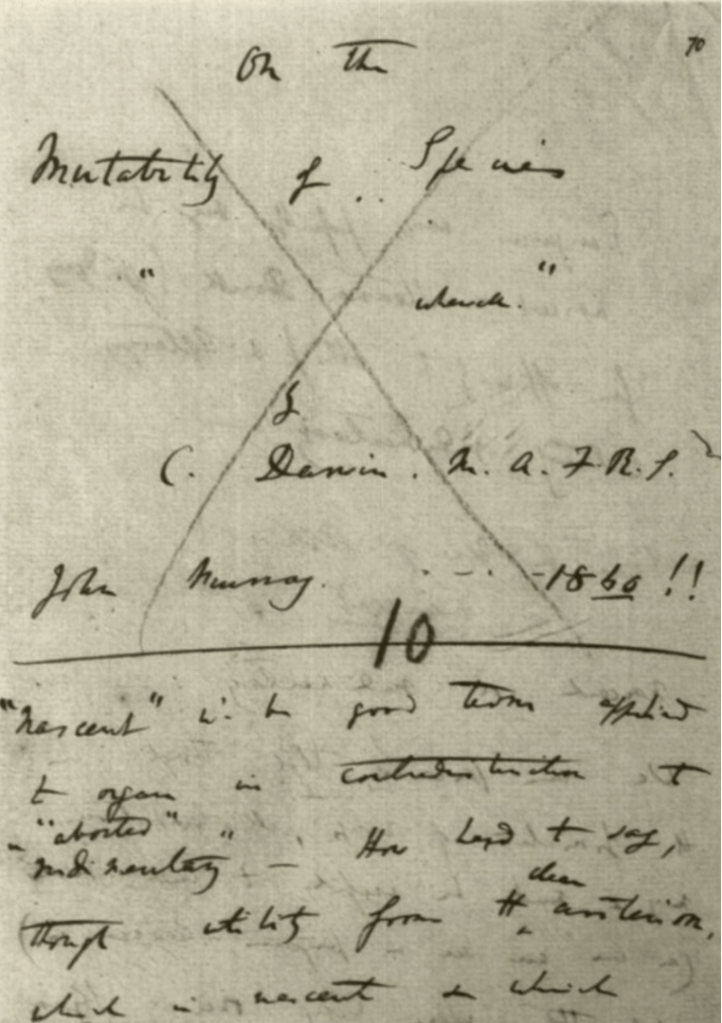 70
On the
Mutability of Species
"                "
by
C. Darwin. M. A. F. R. S.
John Murray. 1860 !!
10
"nascent" is good term applied
to organ in contradistinction to
"aborted"
"rudimentary" — How hard to say,
clear
though utility from
which is nascent & which